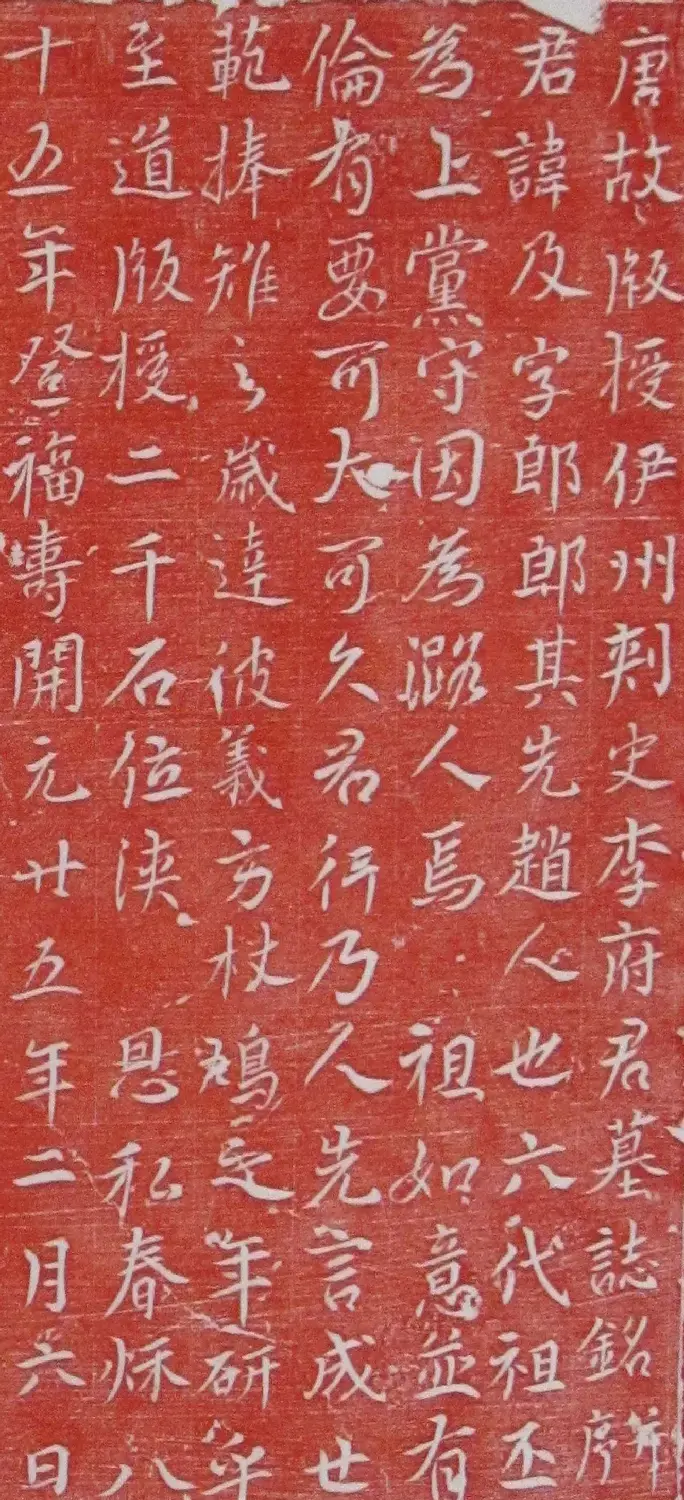 唐故版授伊州刺史李府君墓誌銘并序
君諱及字郎郎其先趙人也六代祖丕
為上黨守因為潞人焉祖如意並有
倫有要可大可久君行乃人先言成世
範捧雉之歲達彼義方杖鳩之年研乎
至道版授二千石位浹恩私春秋八
十五年登福壽開元廿五年二月六日